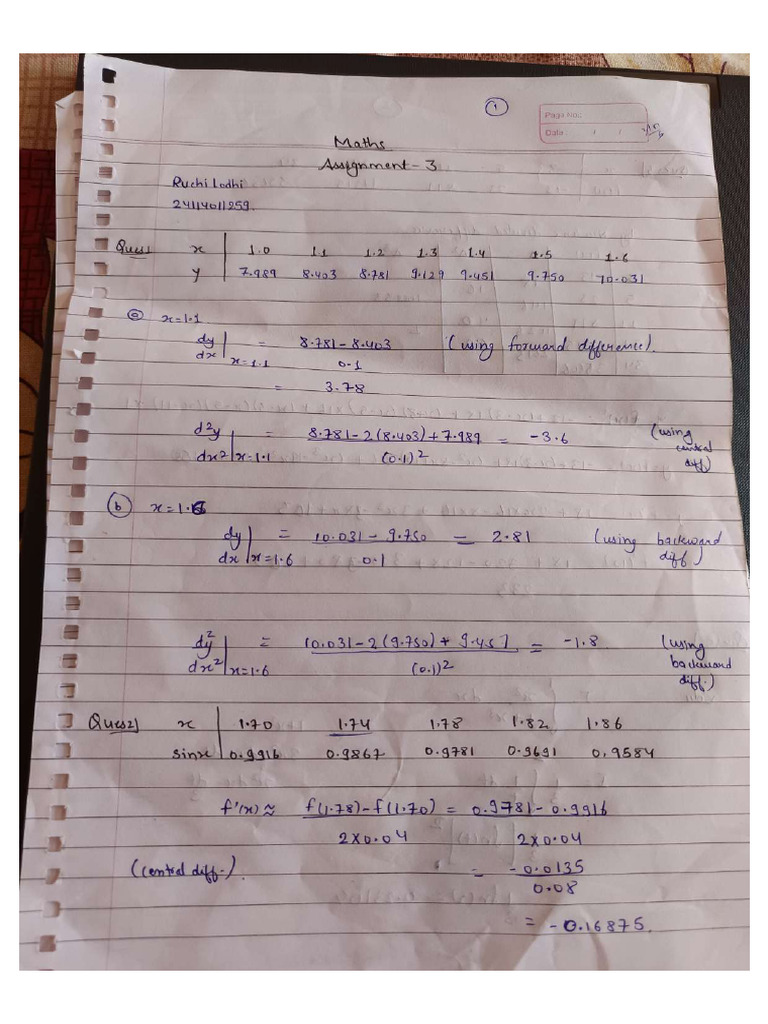 1
Page No:
Date / /
Maths
Assignment - 3
Ruchi Lodhi
24114011259.
Ques1 x | 1.0 1.1 1.2 1.3 1.4 1.5 1.6
y | 7.989 8.403 8.781 9.129 9.451 9.750 10.031
(a) x=1.1
dy/dx | x=1.1 = (8.781-8.403)/0.1 (using forward difference).
= 3.78
d²y/dx² | x=1.1 = (8.781-2(8.403)+7.989)/(0.1)² = -3.6 (using central diff)
(b) x=1.6
dy/dx | x=1.6 = (10.031-9.750)/0.1 = 2.81 (using backward diff)
dy²/dx² | x=1.6 = (10.031-2(9.750)+9.451)/(0.1)² = -1.8 (using backward diff.)
Ques2) x | 1.70 1.74 1.78 1.82 1.86
sinx | 0.9916 0.9867 0.9781 0.9691 0.9584
f'(x) ≈ (f(1.78)-f(1.70))/(2×0.04) = (0.9781-0.9916)/(2×0.04)
(central diff.) = -0.0135/0.08
= -0.16875.